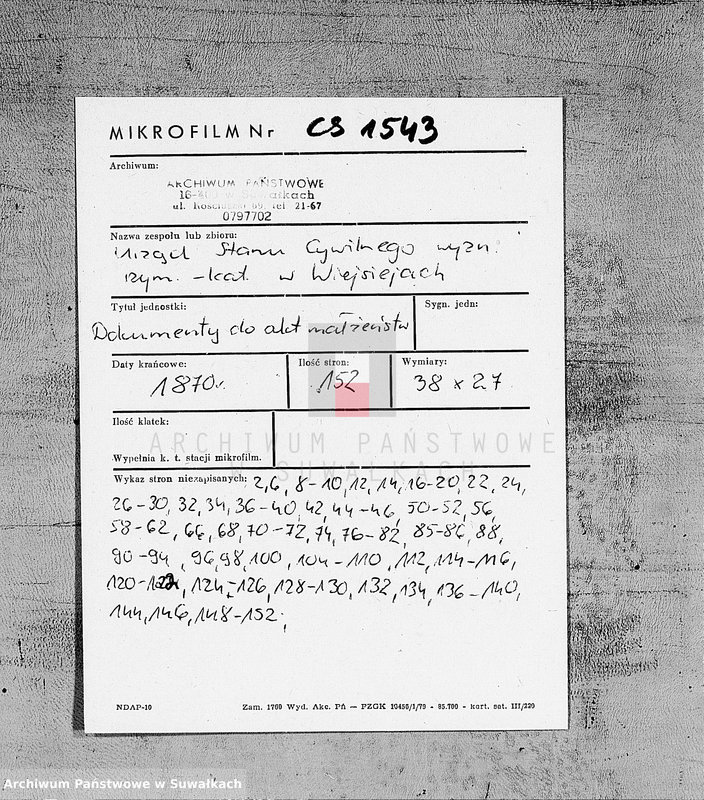 MIKROFILM Nr CS 1543
Archiwum:
ARCHIWUM PAŃSTWOWE
w Suwałkach
ul. Kościuszki 69, tel. 21-67
0797702
Nazwa zespołu lub zbioru:
Urząd Stanu Cywilnego wyzn.
rzym.-kat. w Wiejsiejach
Tytuł jednostki:
Sygn. jedn:
Dokumenty do akt małżeństw
Daty krańcowe:
Ilość stron:
Wymiary:
1870r.
152
38 x 27
Ilość klatek:
ARCHIWUM PAŃSTWOWE
W SUWAŁKACH
Wypełnia k. t. stacji mikrofilm.
Wykaz stron niezapisanych: 2,6, 8-10, 12, 14, 16-20, 22, 24,
26-30, 32, 34, 36-40, 42, 44-46, 50-52, 56,
58-62, 66, 68, 70-72, 74, 76-82, 85-86, 88,
90-94, 96, 98, 100, 104-110, 112, 114-116,
120-122, 124-126, 128-130, 132, 134, 136-140,
144, 146, 148-152,
NDAP-10
Zam. 1760 Wyd. Akc. Pń — PZGK 10450/1/79 - 85.700 - kart. sat. III/220
Archiwum Państwowe w Suwałkach